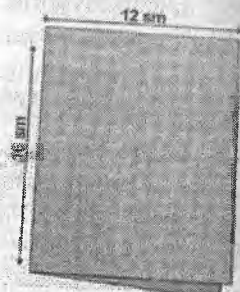 12 sm
16 sm